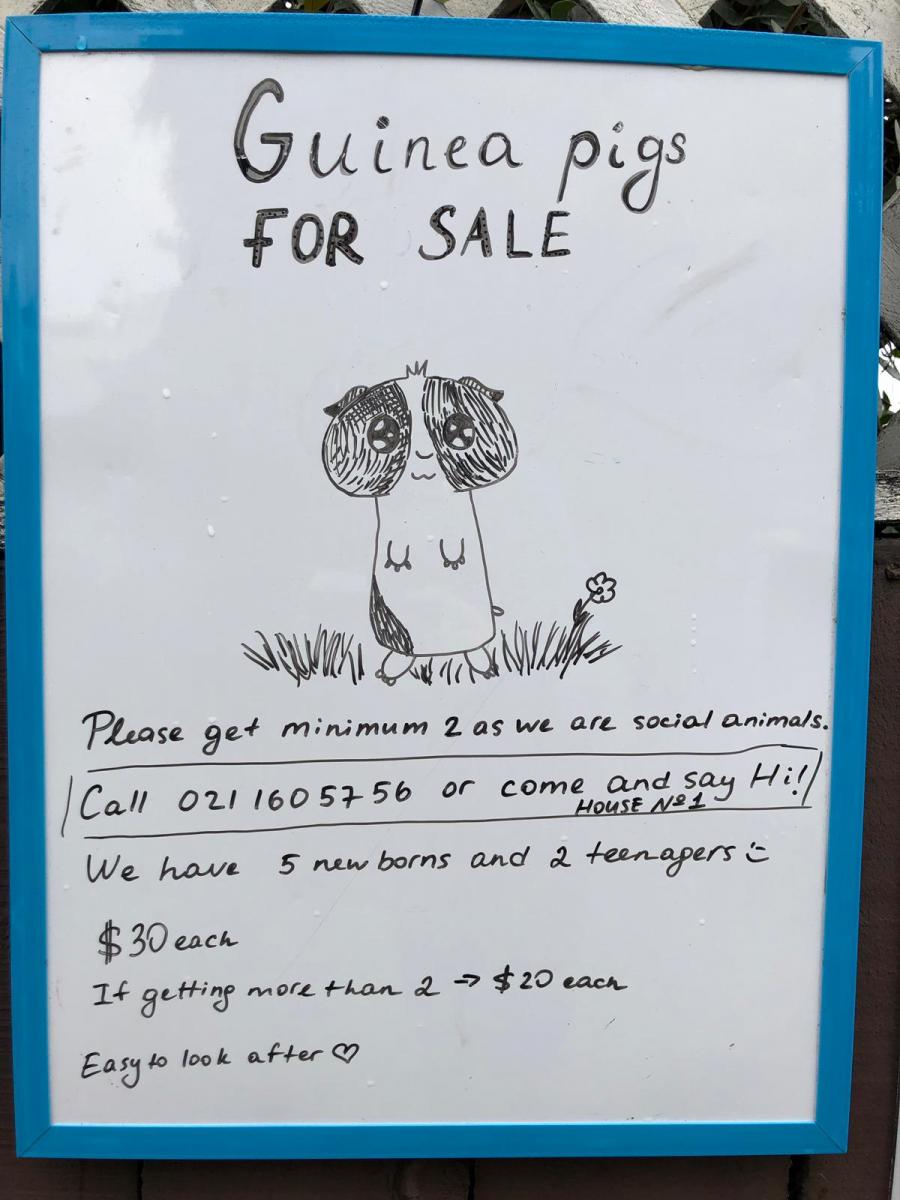 Guinea pigs
FOR SALE
Please get minimum 2 as we are social animals.
Call 021 160 57 56 or come and say Hi!
HOUSE Nº1
We have 5 newborns and 2 teenagers :)
$30 each
If getting more than 2 → $20 each
Easy to look after ♡